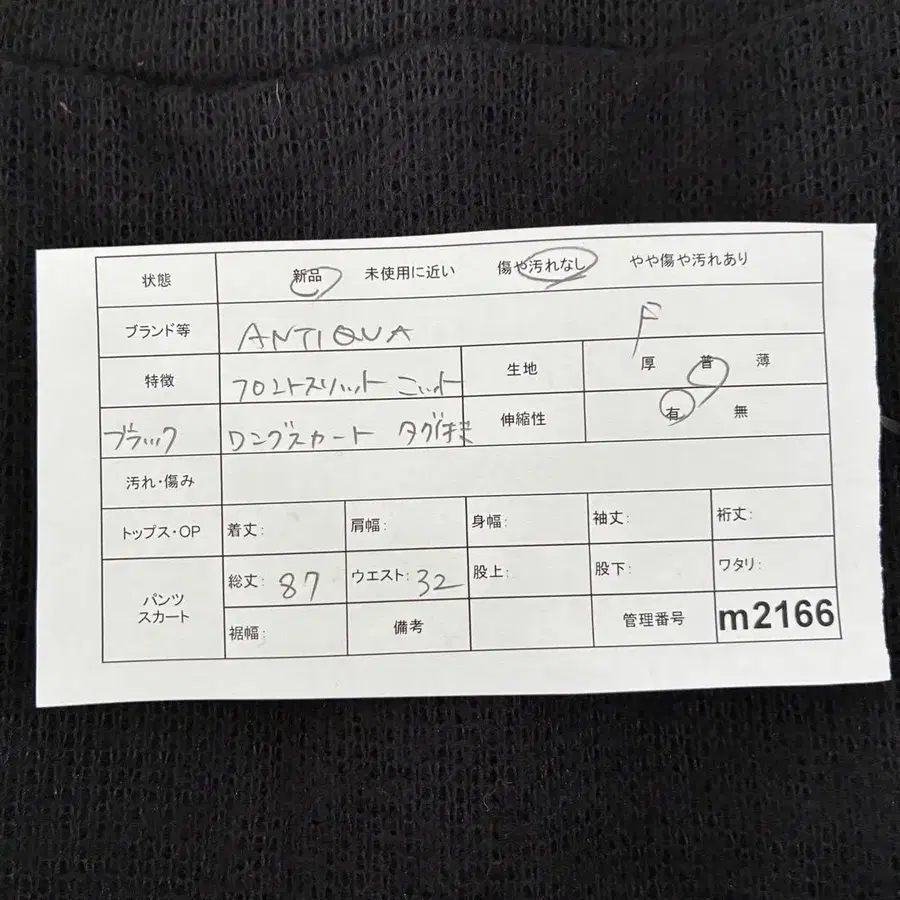 状態 新品 未使用に近い 傷や汚れなし やや傷や汚れあり
ブランド等 ANTIQUA F
特徴 フロントスリット ニット 生地 厚 普 薄
ブラック ロングスカート タグ付き 伸縮性 有 無
汚れ・傷み
トップス・OP 着丈: 肩幅: 身幅: 袖丈: 裄丈:
パンツ スカート 総丈: 87 ウエスト: 32 股上: 股下: ワタリ:
裾幅: 備考 管理番号 m2166